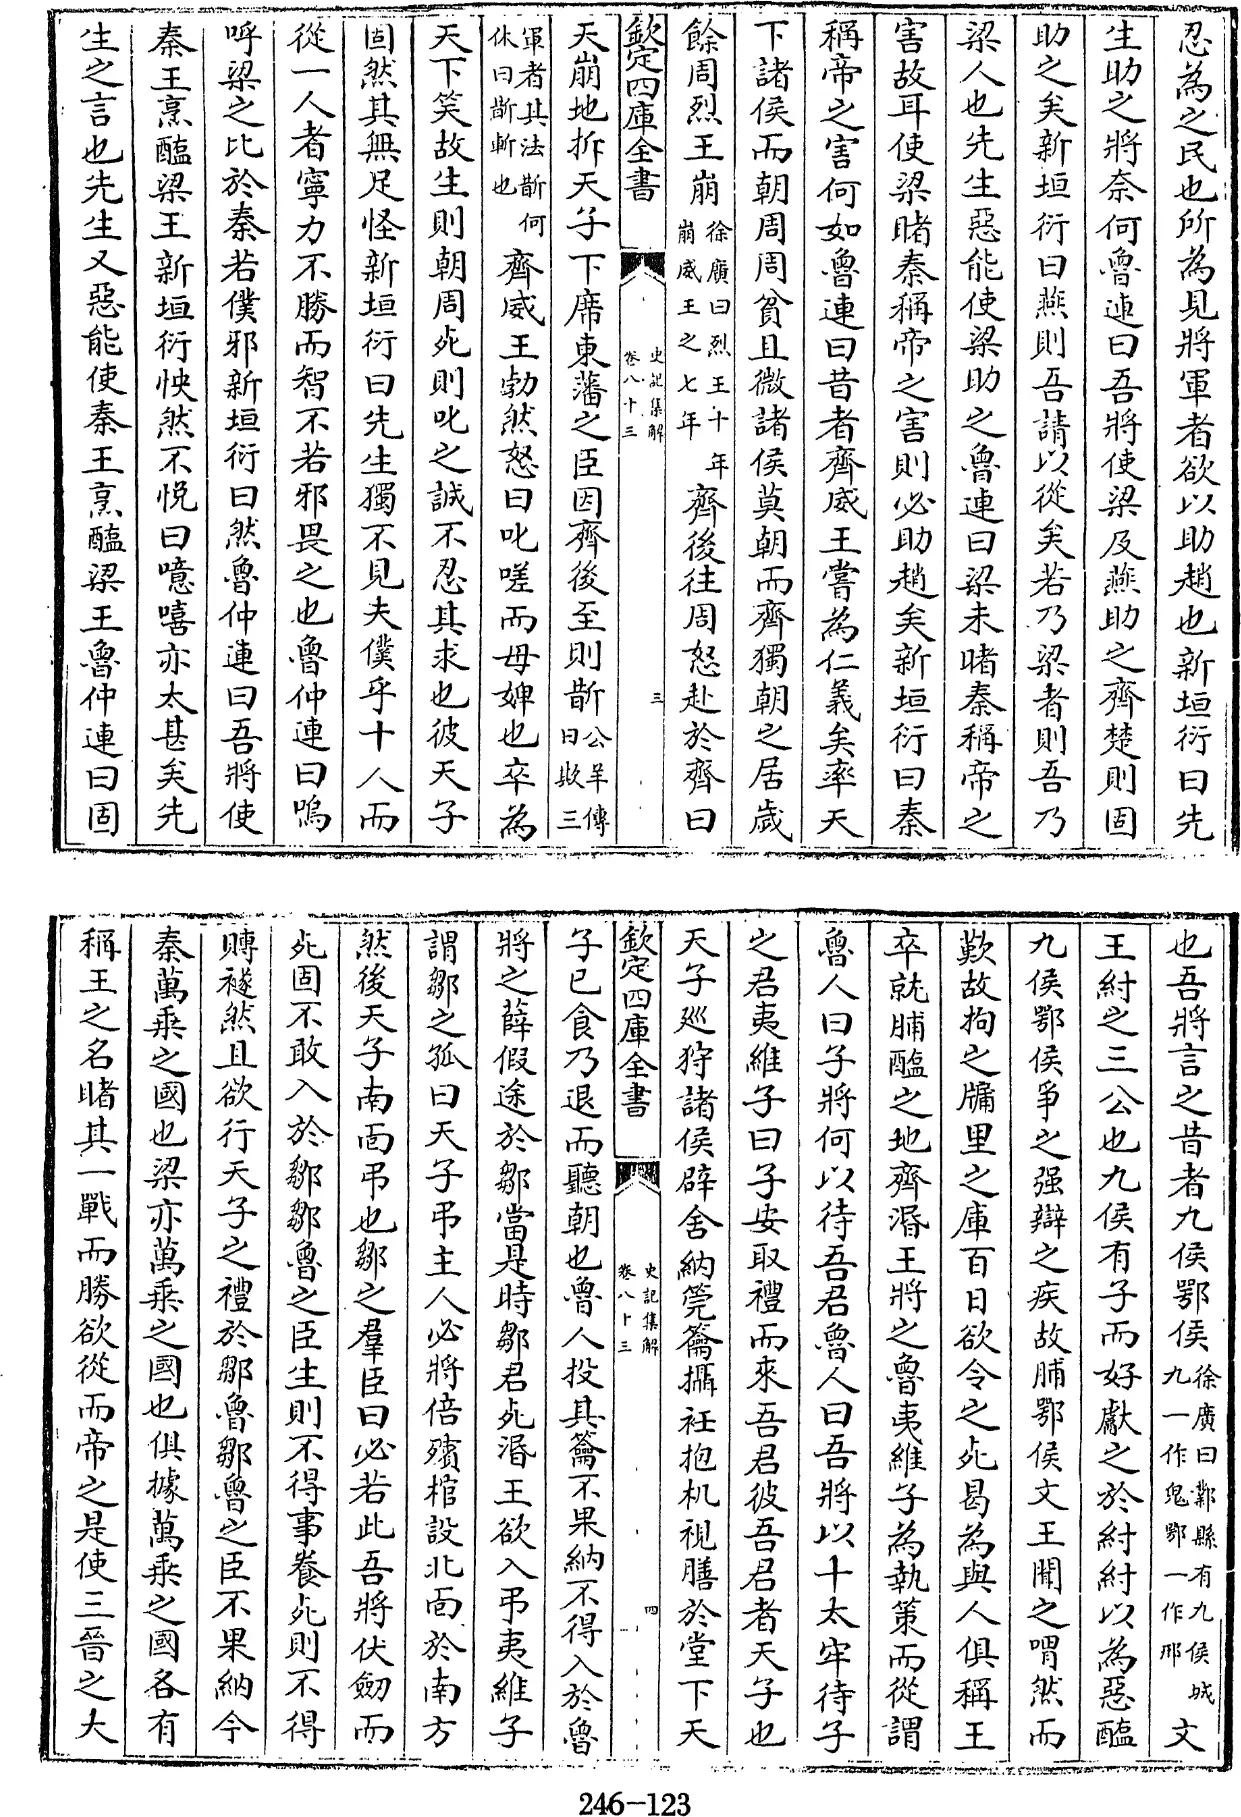 忍為之民也所為見將軍者欲以助趙也新垣衍曰先
生助之將奈何魯連曰吾將使梁及燕助之齊楚則固
助之矣新垣衍曰燕則吾請以從矣若乃梁者則吾乃
梁人也先生惡能使梁助之魯連曰梁未睹秦稱帝之
害故耳使梁睹秦稱帝之害則必助趙矣新垣衍曰秦
稱帝之害何如魯連曰昔者齊威王嘗為仁義矣率天
下諸侯而朝周周貧且微諸侯莫朝而齊獨朝之居歲
餘周烈王崩徐廣曰烈王十年崩威王之七年齊後往周怒赴於齊曰
欽定四庫全書
史記集解
卷八十三
三
天崩地拆天子下席東藩之臣因齊後至則斮公羊傳曰欺三
軍者其法斮何休曰斮斬也齊威王勃然怒曰叱嗟而母婢也卒為
天下笑故生則朝周死則叱之誠不忍其求也彼天子
固然其無足怪新垣衍曰先生獨不見夫僕乎十人而
從一人者寧力不勝而智不若邪畏之也魯仲連曰嗚
呼梁之比於秦若僕邪新垣衍曰然魯仲連曰吾將使
秦王烹醢梁王新垣衍怏然不悅曰噫嘻亦太甚矣先
生之言也先生又惡能使秦王烹醢梁王魯仲連曰固
也吾將言之昔者九侯鄂侯徐廣曰鄴縣有九侯城九一作鬼鄂一作邢文
王紂之三公也九侯有子而好獻之於紂紂以為惡醢
九侯鄂侯爭之强辯之疾故脯鄂侯文王聞之喟然而
歎故拘之牖里之庫百日欲令之死曷為與人俱稱王
卒就脯醢之地齊湣王將之魯夷維子為執策而從謂
魯人曰子將何以待吾君魯人曰吾將以十太牢待子
之君夷維子曰子安取禮而來吾君彼吾君者天子也
天子廵狩諸侯辟舍納筦籥攝衽抱机視膳於堂下天
欽定四庫全書
史記集解
卷八十三
四
子已食乃退而聽朝也魯人投其籥不果納不得入於魯
將之薛假途於鄒當是時鄒君死湣王欲入弔夷維子
謂鄒之孤曰天子弔主人必將倍殯棺設北面於南方
然後天子南面弔也鄒之羣臣曰必若此吾將伏劒而
死固不敢入於鄒鄒魯之臣生則不得事養死則不得
賻襚然且欲行天子之禮於鄒魯鄒魯之臣不果納今
秦萬乘之國也梁亦萬乘之國也俱據萬乘之國各有
稱王之名睹其一戰而勝欲從而帝之是使三晉之大
246-123